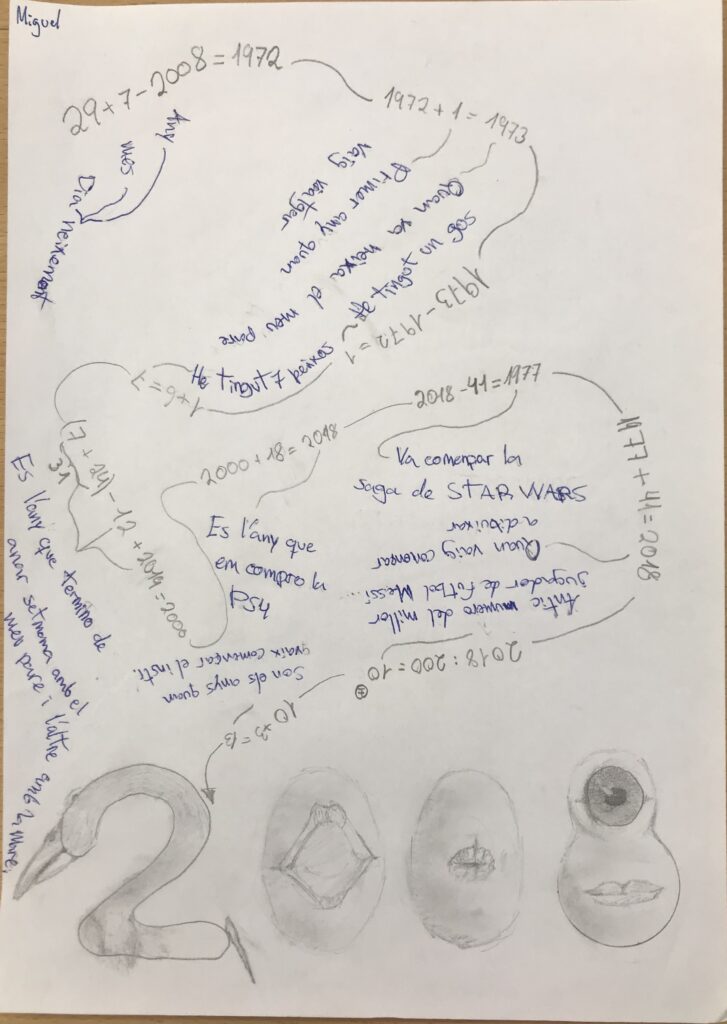 Miguel
29+7-2008=1972
Any
mes
Dia neixement
1972+1=1973
Primer any quan
vaig viatjar
Quan va neixa el meu pare
1973-1972=1
He tingut un gos
He tingut 7 peixos
1+6=7
(7+24)-12+2019=2000
31
Es l'any que termino de
anar setmana amb el
meu pare i l'altre amb la mare.
2000+18=2018
Es l'any que
em compro la
PS4
2018-41=1977
Va començar la
saga de STAR WARS
1977+41=2018
Quan vaig començar
a dibuixar
2018:200=10
Antic numero del millor
jugador de futbol Messi...
10+3=13
Son els anys quan
vaix començar el insti.
2008